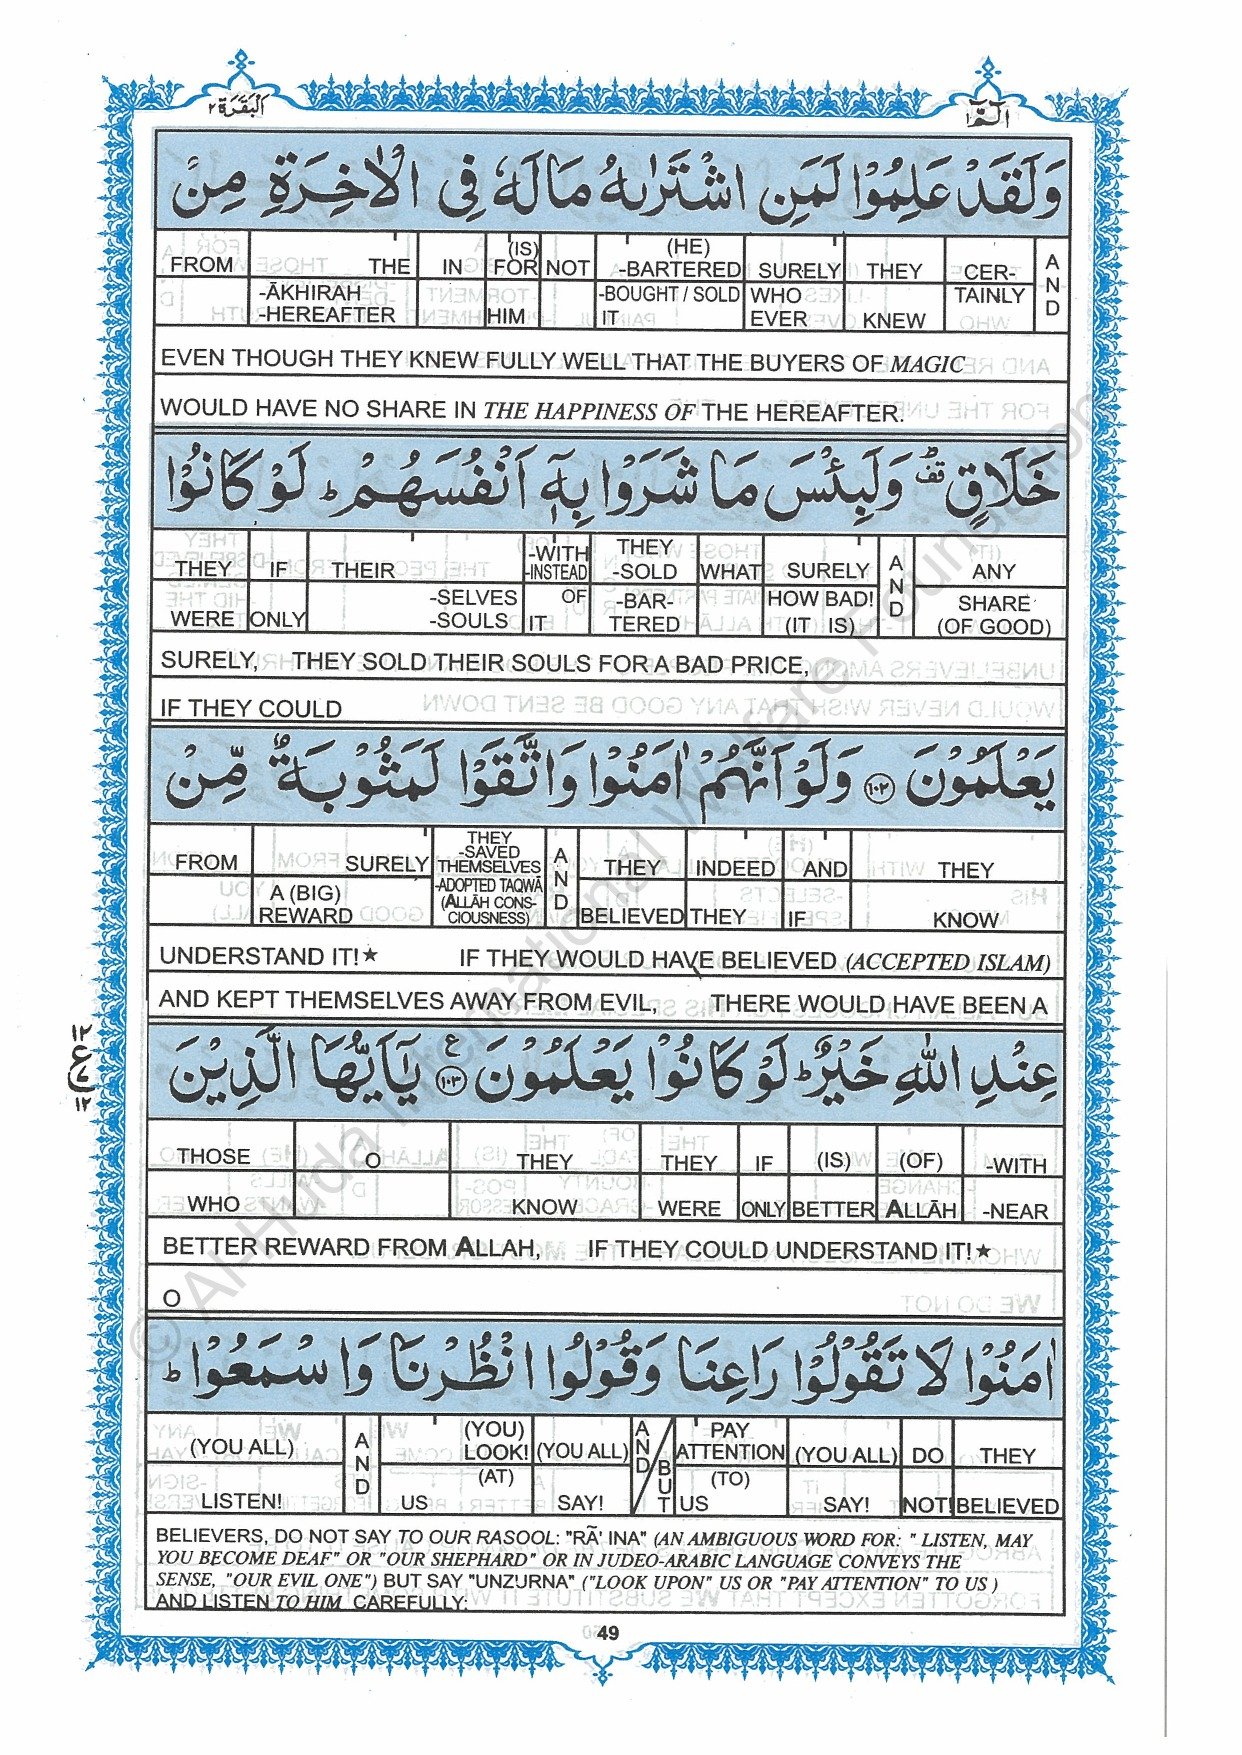 اَلْبَقَرَة ٢
الٓمّٓ ١
وَلَقَدْ عَلِمُوْا لَمَنِ اشْتَرٰىهُ مَا لَهٗ فِی الْاٰخِرَةِ مِنْ
FROM THE IN (IS) FOR NOT (HE) -BARTERED SURELY THEY CER- AND
-ĀKHIRAH -HEREAFTER HIM -BOUGHT / SOLD IT WHO EVER KNEW TAINLY
EVEN THOUGH THEY KNEW FULLY WELL THAT THE BUYERS OF MAGIC
WOULD HAVE NO SHARE IN THE HAPPINESS OF THE HEREAFTER.
خَلَاقٍ ۛقف وَلَبِئْسَ مَا شَرَوْا بِهٖٓ اَنْفُسَهُمْ ؕ لَوْ كَانُوْا
THEY IF THEIR -WITH -INSTEAD THEY -SOLD WHAT SURELY AND ANY
WERE ONLY -SELVES -SOULS OF IT -BAR- TERED HOW BAD! (IT IS) SHARE (OF GOOD)
SURELY, THEY SOLD THEIR SOULS FOR A BAD PRICE,
IF THEY COULD
يَعْلَمُوْنَ ﴿١٠٢﴾ وَلَوْ اَنَّهُمْ اٰمَنُوْا وَاتَّقَوْا لَمَثُوْبَةٌ مِّنْ
FROM SURELY THEY -SAVED THEMSELVES -ADOPTED TAQWĀ (ALLĀH CONS- CIOUSNESS) AND THEY INDEED AND THEY
A (BIG) REWARD BELIEVED THEY IF KNOW
UNDERSTAND IT!★ IF THEY WOULD HAVE BELIEVED (ACCEPTED ISLAM)
AND KEPT THEMSELVES AWAY FROM EVIL, THERE WOULD HAVE BEEN A
١٢
ع
١٢
عِنْدِ اللّٰهِ خَيْرٌ ؕ لَوْ كَانُوْا يَعْلَمُوْنَ ﴿١٠٣﴾ ع يٰۤاَيُّهَا الَّذِيْنَ
THOSE O THEY THEY IF (IS) (OF) -WITH
WHO KNOW WERE ONLY BETTER ALLĀH -NEAR
BETTER REWARD FROM ALLAH, IF THEY COULD UNDERSTAND IT!★
O
اٰمَنُوْا لَا تَقُوْلُوْا رَاعِنَا وَقُوْلُوا انْظُرْنَا وَاسْمَعُوْا ؕ
(YOU ALL) AND (YOU) LOOK! (YOU ALL) AND/BUT PAY ATTENTION (YOU ALL) DO THEY
LISTEN! (AT) US SAY! (TO) US SAY! NOT! BELIEVED
BELIEVERS, DO NOT SAY TO OUR RASOOL: "RĀ' INA" (AN AMBIGUOUS WORD FOR: " LISTEN, MAY
YOU BECOME DEAF" OR "OUR SHEPHARD" OR IN JUDEO-ARABIC LANGUAGE CONVEYS THE
SENSE, "OUR EVIL ONE") BUT SAY "UNZURNA" ("LOOK UPON" US OR "PAY ATTENTION" TO US )
AND LISTEN TO HIM CAREFULLY:
49
© Al-Huda International Welfare Foundation